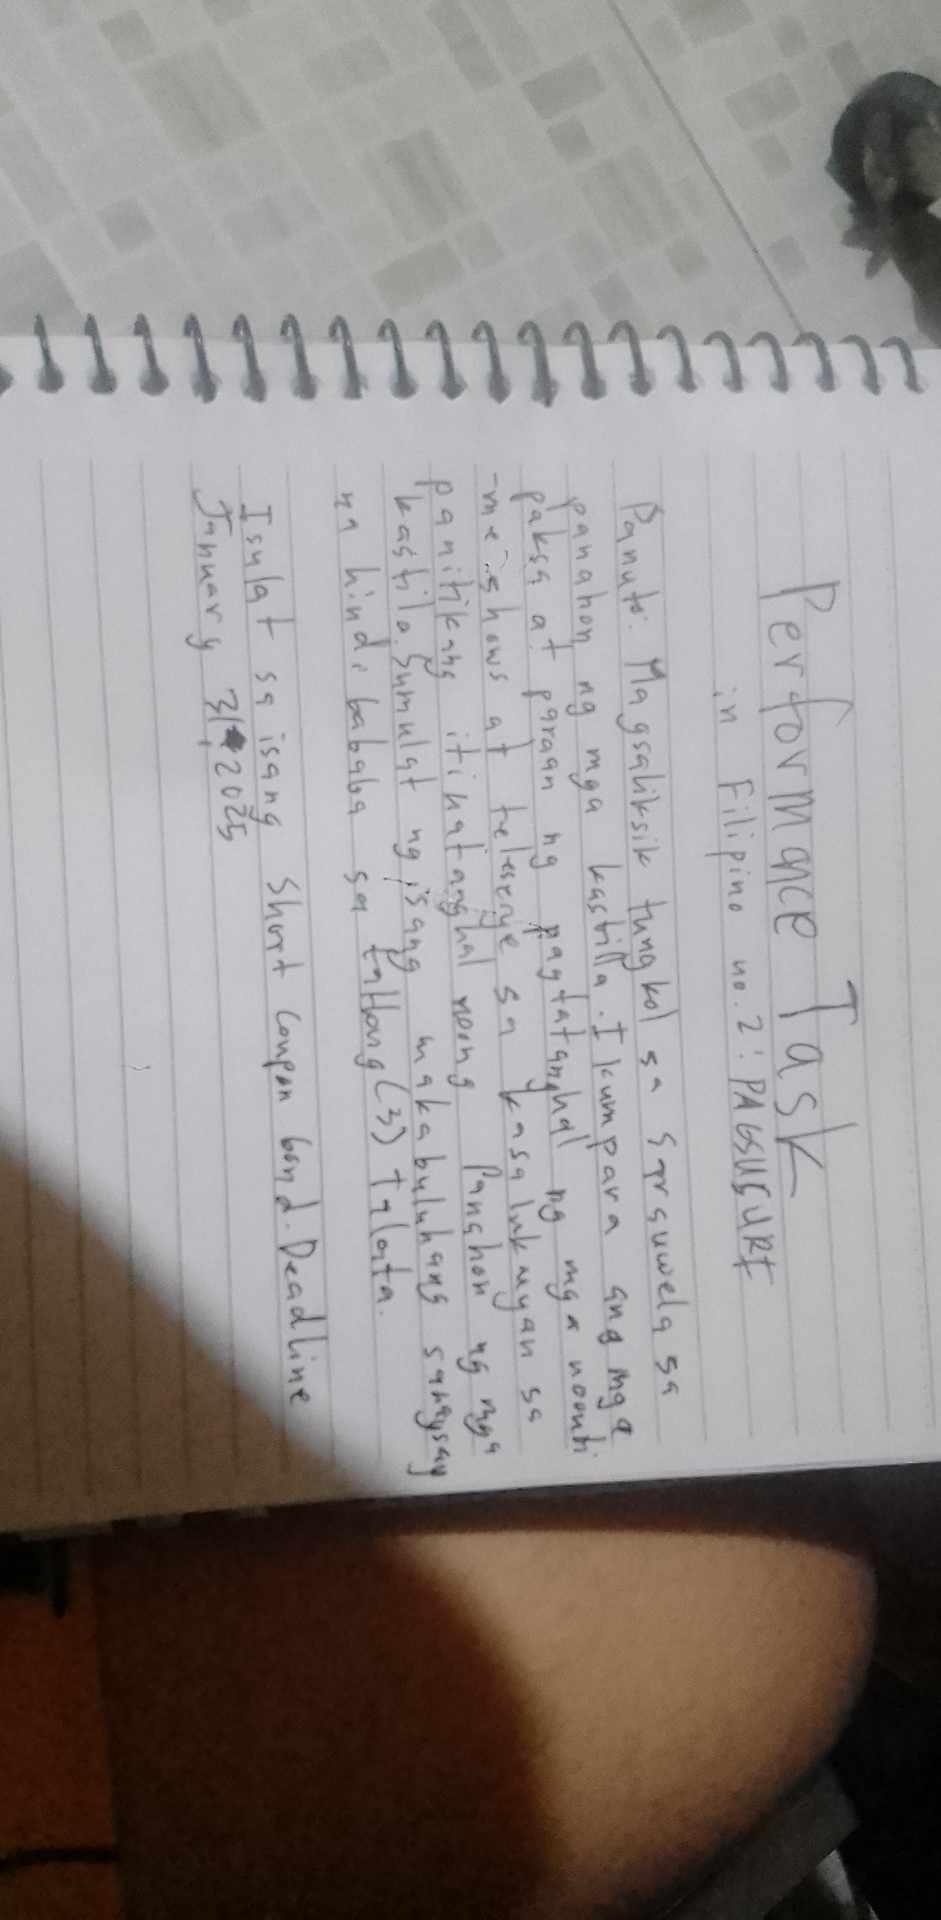 Performance Task
in Filipino no. 2: PAGSUSURI
Panuto: Magsaliksik tungkol sa Sarsuwela sa
panahon ng mga kastilla. Ikumpara ang mga
paksa at paraan ng pagtatanghal ng mga noonti
-me-shows at teleserye sa kasalukuyan sa
panitikang itinatanghal noong Panahon ng mga
kastila. Sumulat ng isang makabuluhang sanaysay
na hindi bababa sa tatlong (3) talata.
Isulat sa isang Short coupon bond. Deadline
January 31, 2025